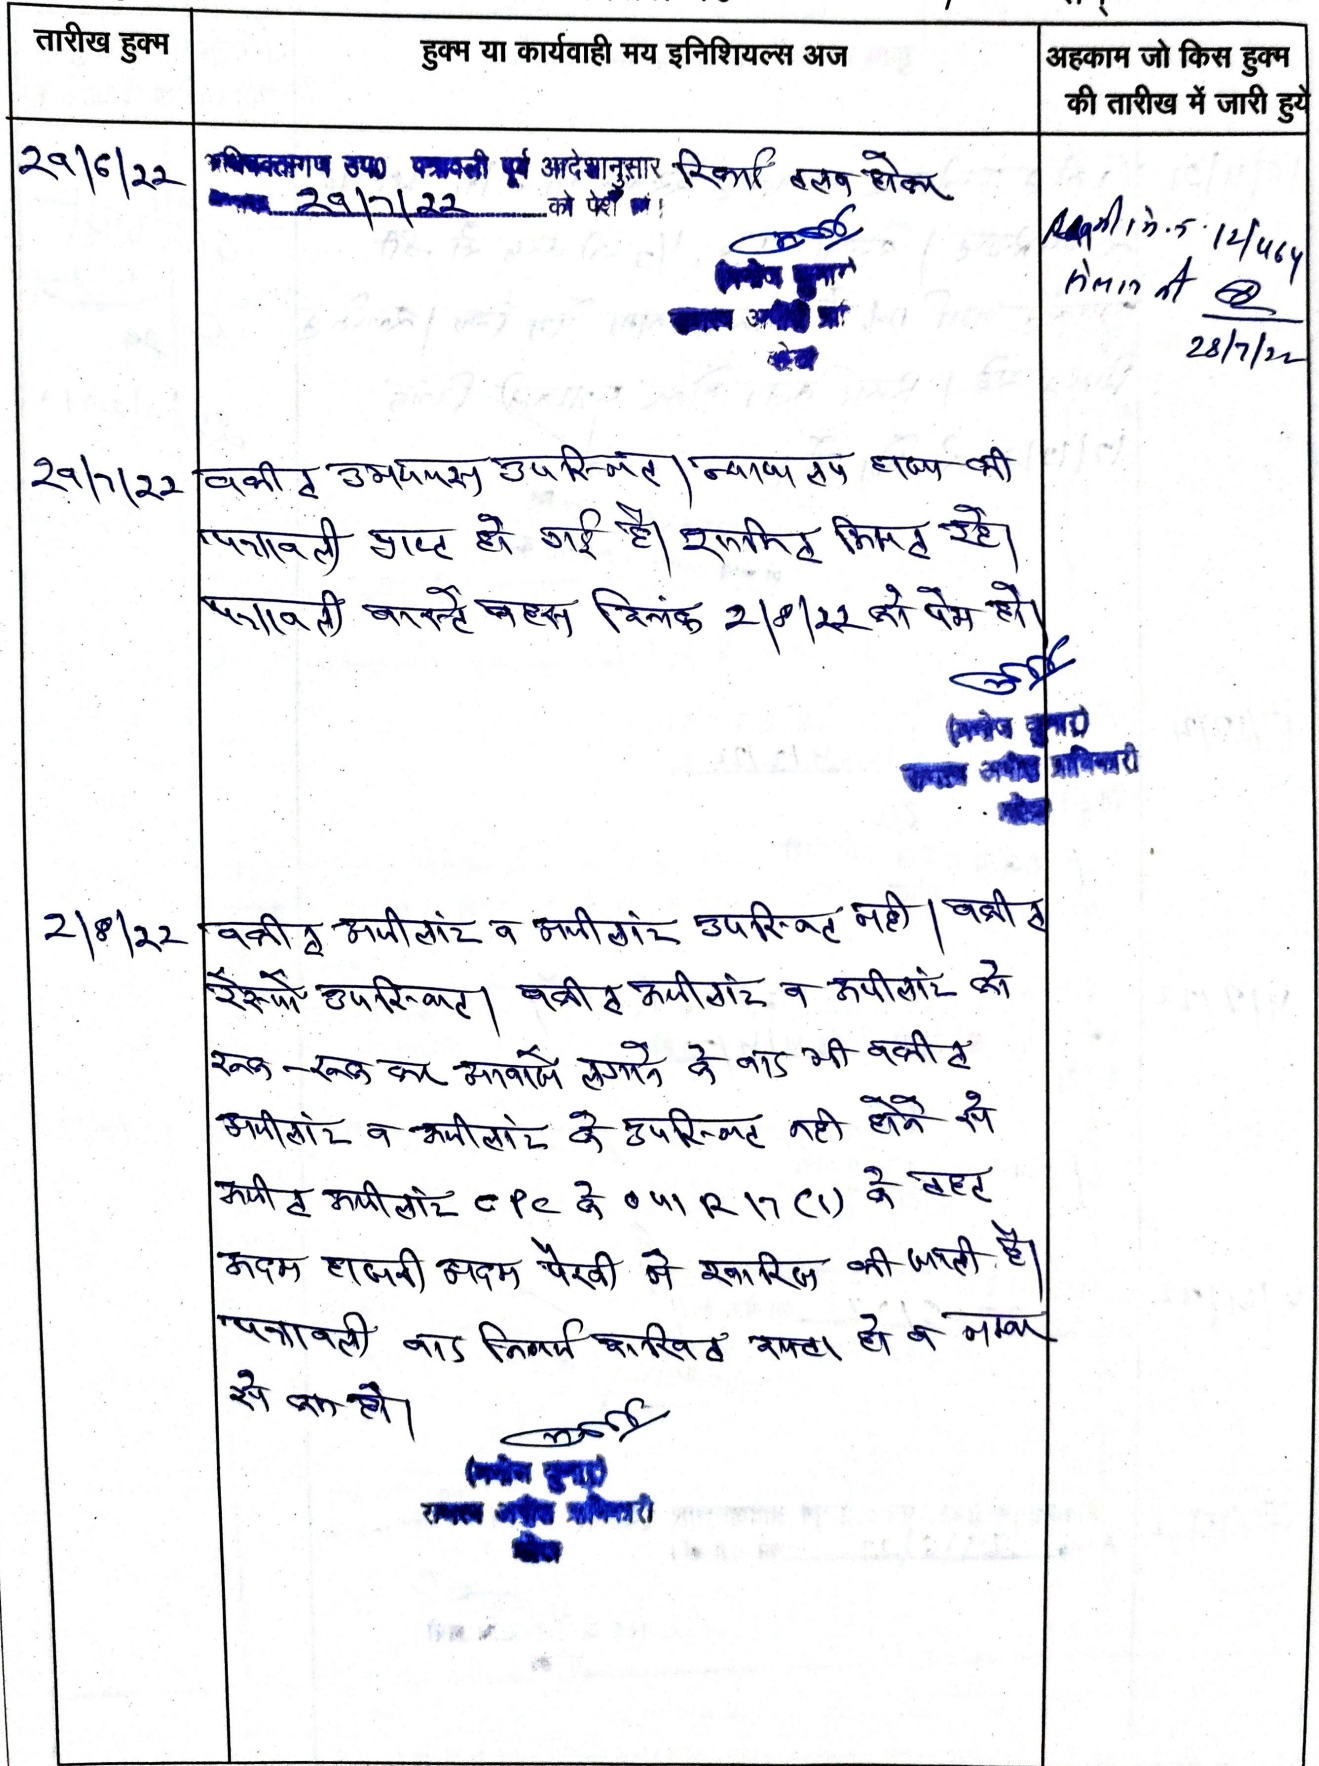 तारीख हुक्म
हुक्म या कार्यवाही मय इनिशियल्स अज
अहकाम जो किस हुक्म
की तारीख में जारी हुये
29/6/22
अधिवक्तागण उप0 पत्रावली पूर्व आदेशानुसार रिकार्ड तलब होकर
29/7/22 को पेश हो।
(मनोज कुमार)
राजस्व अपील प्रा
12/464
28/7/22
29/7/22
वकील उभयपक्ष उपस्थित। न्यायालय हाजा की
पत्रावली प्राप्त हो गई है। शामिल मिसल रहे।
पत्रावली वास्ते बहस दिनांक 2/8/22 को पेश हो।
(मनोज कुमार)
राजस्व अपील प्राधिकारी
2/8/22
वकील अपीलांट व अपीलांट उपस्थित नही। वकील
रेस्पो उपस्थित। वकील अपीलांट व अपीलांट को
रूक-रूक कर आवाजे लगाने के बाद भी वकील
अपीलांट व अपीलांट के उपस्थित नही होने से
अपील अपीलांट CPC के O 41 R 17 (1) के तहत
अदम हाजरी अदम पैरवी मे खारिज की जाती है।
पत्रावली बाद निर्णय दाखिल दफ्तर हो व नम्बर
से कम हो।
(मनोज कुमार)
राजस्व अपील प्राधिकारी